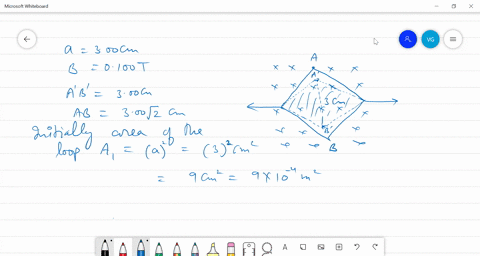 Microsoft Whiteboard
VG
a = 3.00cm
B = 0.100T
A'B' = 3.00cm
AB = 3.00√2 cm
Initially area of the
loop A₁ = (a)² = (3)² cm²
= 9cm² = 9×10⁻⁴ m²
A
A'
3cm
B'
B